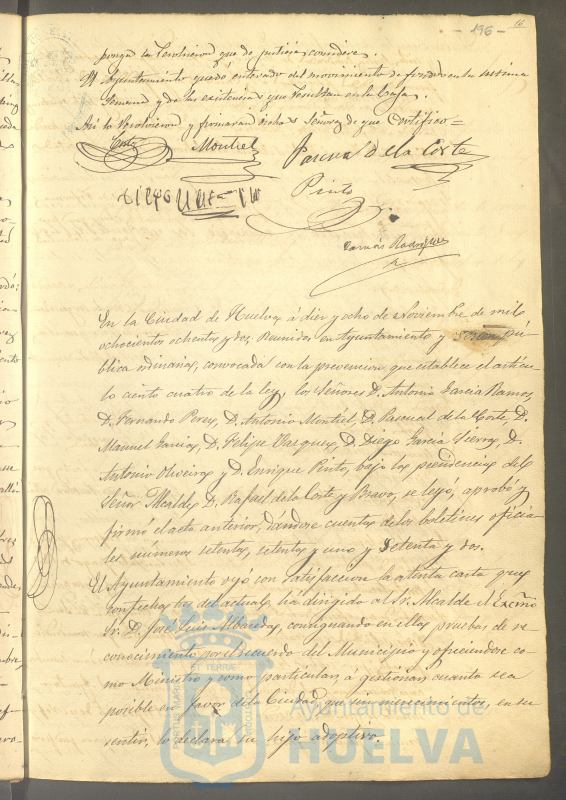 16
- 196 -
ponga la resolucion que de justicia considere.
El Ayuntamiento quedó enterado del movimiento de fondos en la ultima
semana y de las existencias que resultan en la Caja.
Asi lo resolvieron y firmaran dichos Señores de que Certifico=
Corte Montiel Pascual de la Corte
Pinto
Tomás Rodriguez
En la Ciudad de Huelva á diez y ocho de Noviembre de mil
ochocientos ochenta y dos, Reunidos en Ayuntamiento y sesion pú-
blica ordinaria, convocada con la prevencion que establece el articu-
lo ciento cuatro de la ley, los Señores D. Antonio Garcia Ramos,
D. Fernando Perez, D. Antonio Montiel, D. Pascual de la Corte, D.
Manuel Garcia, D. Felipe Vazquez, D. Diego Garcia Sierra, D.
Antonio Oliveira y D. Enrique Pinto, bajo la presidencia del
Señor Alcalde D. Rafael de la Corte y Bravo, se leyó, aprobó y
firmó el acta anterior, dándose cuenta de los boletines oficia-
les numeros setenta, setenta y uno y Setenta y dos.
El Ayuntamiento oyó con satisfaccion la atenta carta que
con fecha del actual, ha dirigido al Sr. Alcalde el Excmo
Sr. D. José Luis Albareda, consignando en ella pruebas de re-
conocimiento por el recuerdo del Municipio y ofreciendose co-
mo Ministro y como particular, á gestionar cuanto sea
posible en favor de la Ciudad que sin merecimientos, en su
sentir, lo declara su hijo adoptivo.
Ayuntamiento de
HUELVA